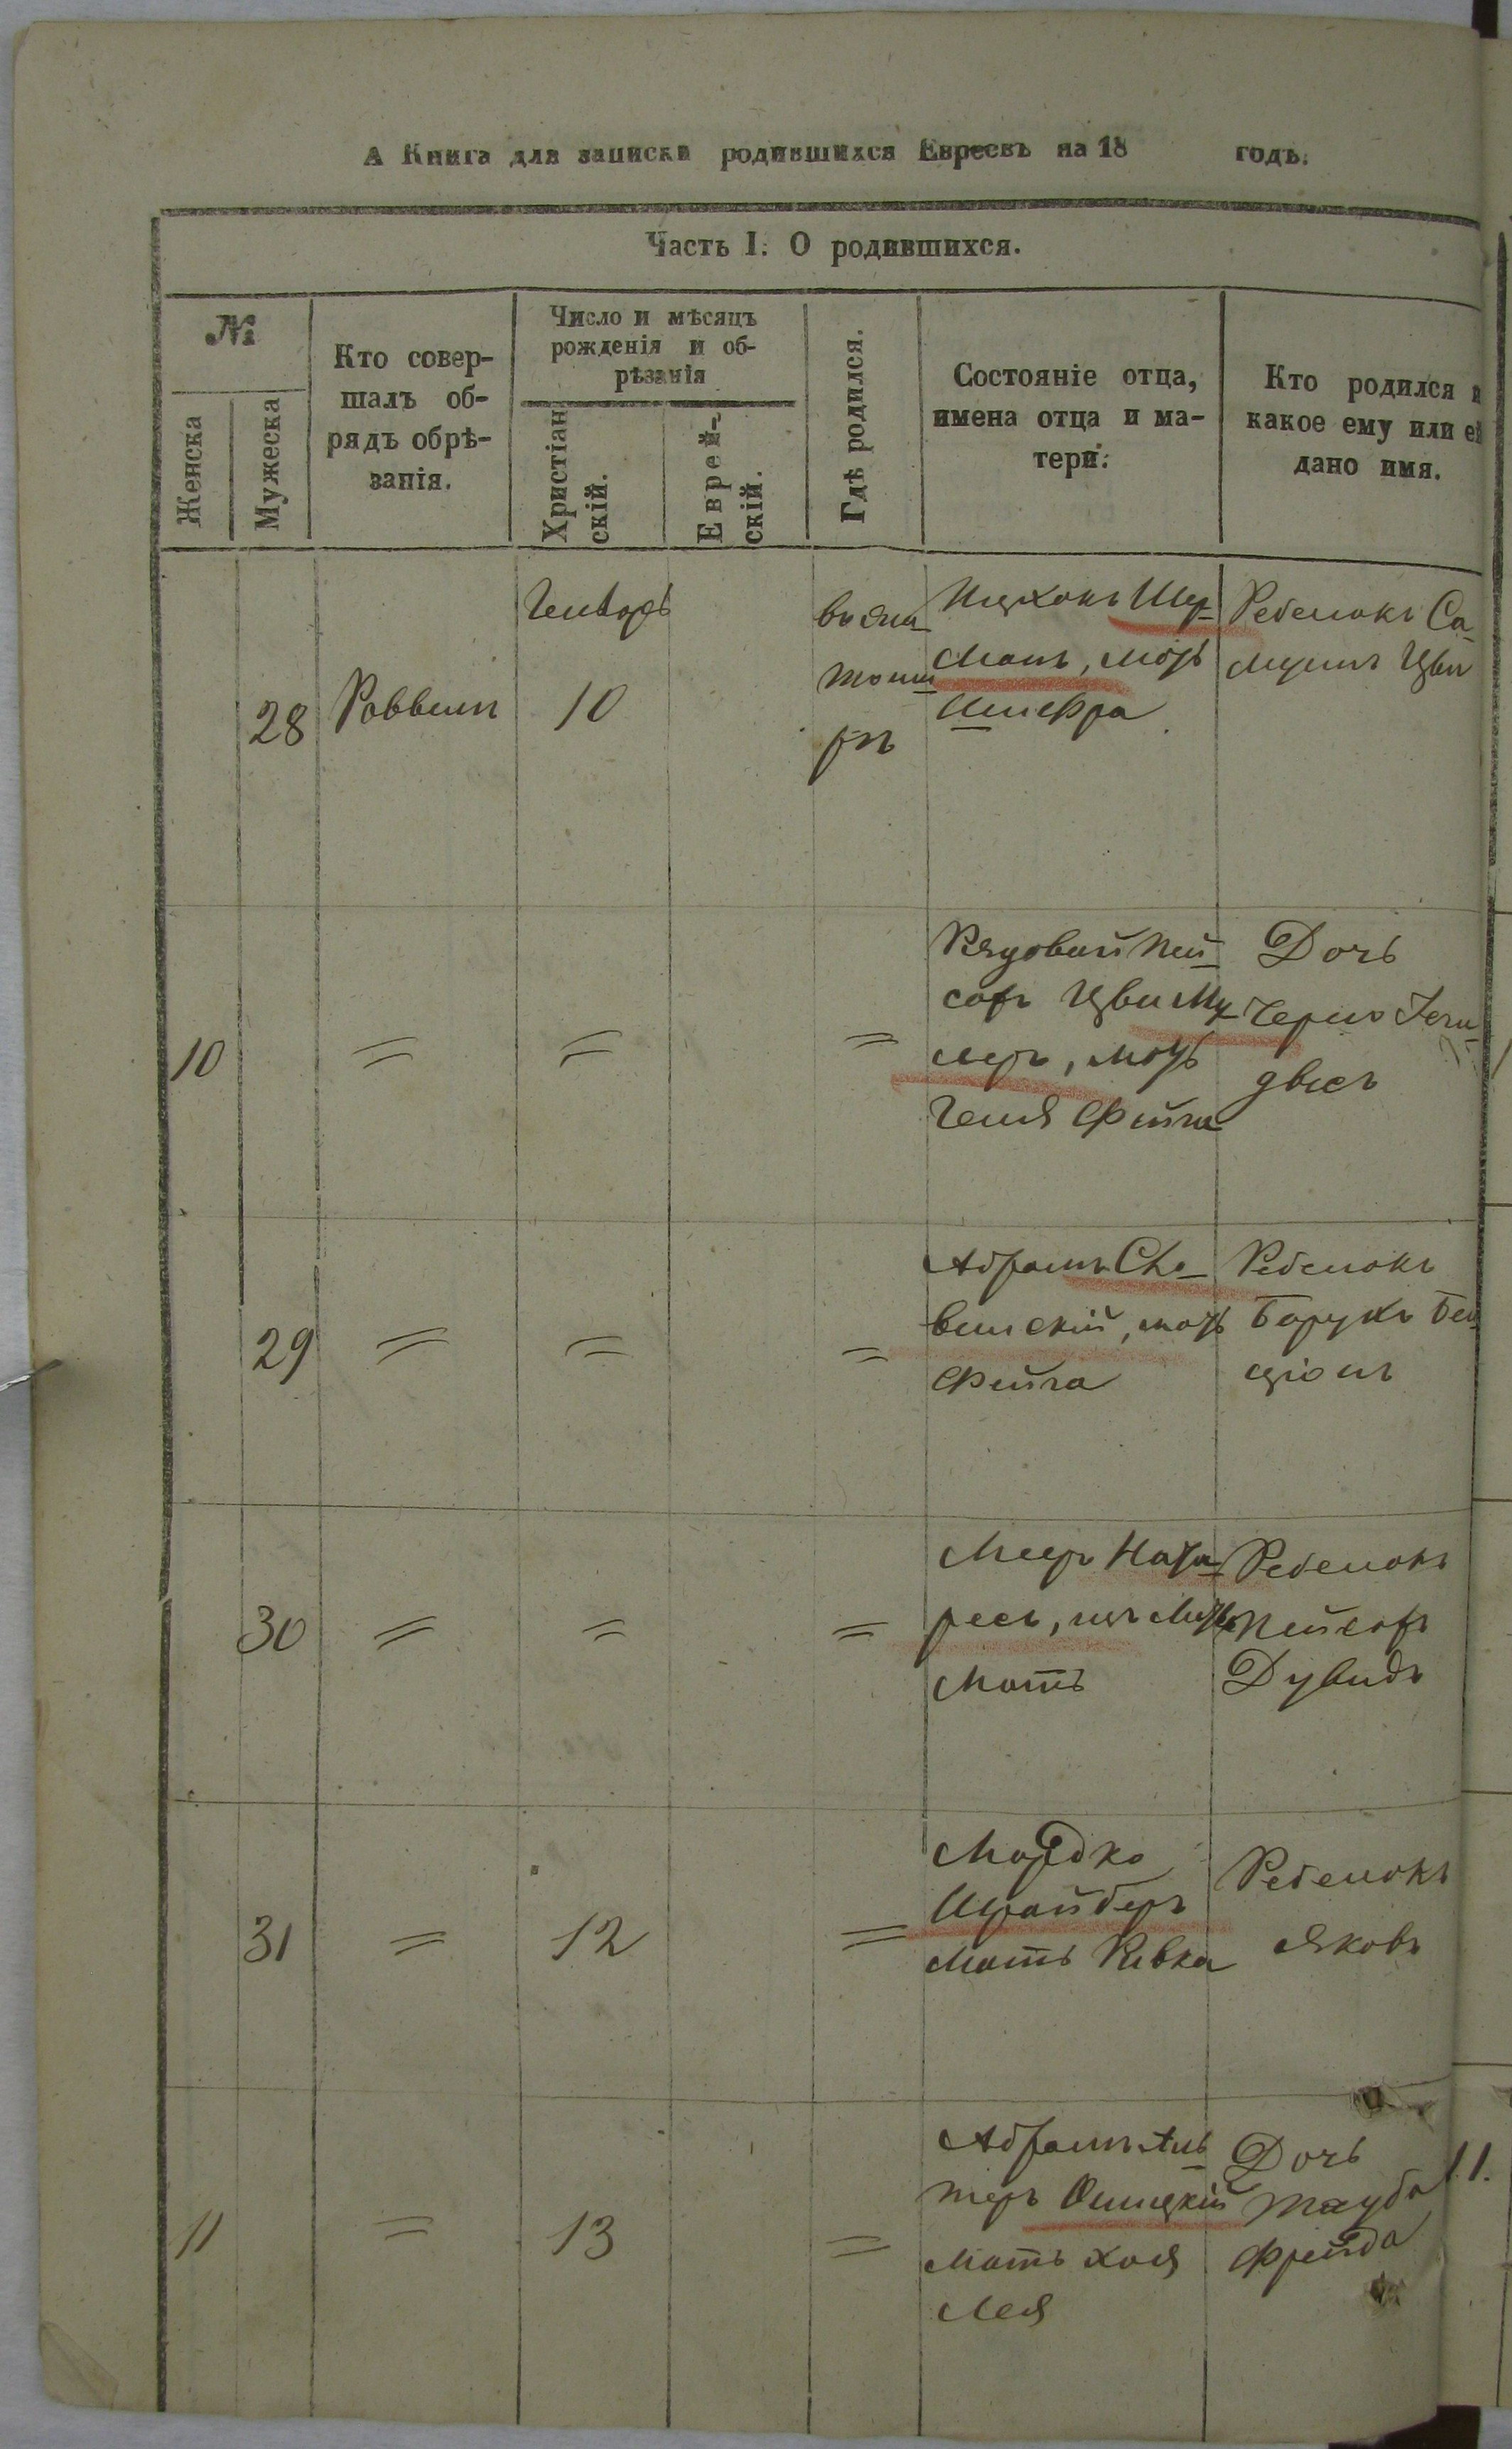 А Книга для записки родившихся Евреевъ на 18 годъ.
Часть I. О родившихся.
№
Женска
Мужеска
Кто совер-
шалъ об-
рядъ обрѣ-
занія.
Число и мѣсяцъ
рожденія и об-
рѣзанія
Христіан
скій.
Еврей-
скій.
Гдѣ родился.
Состояніе отца,
имена отца и ма-
тери.
Кто родился и
какое ему или ей
дано имя.
28
Раввинъ
Генварь
10
въ
Ицхокъ Шер-
манъ, мать
Шифра
Ребенокъ Са-
муилъ Цви
10
=
=
=
Рядовой Пей-
сах Цви Му
леръ, мать
Геня Фейга
Дочь
двесъ
29
=
=
=
Абрамъ Сла-
венскій, мать
Фейга
Ребенокъ
Борухъ Бен
ціонъ
30
=
=
=
Меер
мать
Ребенокъ
Пейсах
Дувидъ
31
=
12
=
Мордко
Шрайберъ
мать Ривка
Ребенокъ
Яковъ
11
=
13
=
Абрамъ Аль-
теръ Ошицкій
мать Хая
Лея
Дочь
Тауба
Фрейда
11.